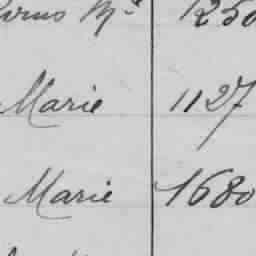 Mse 1250
Marie 1127
Marie 1680